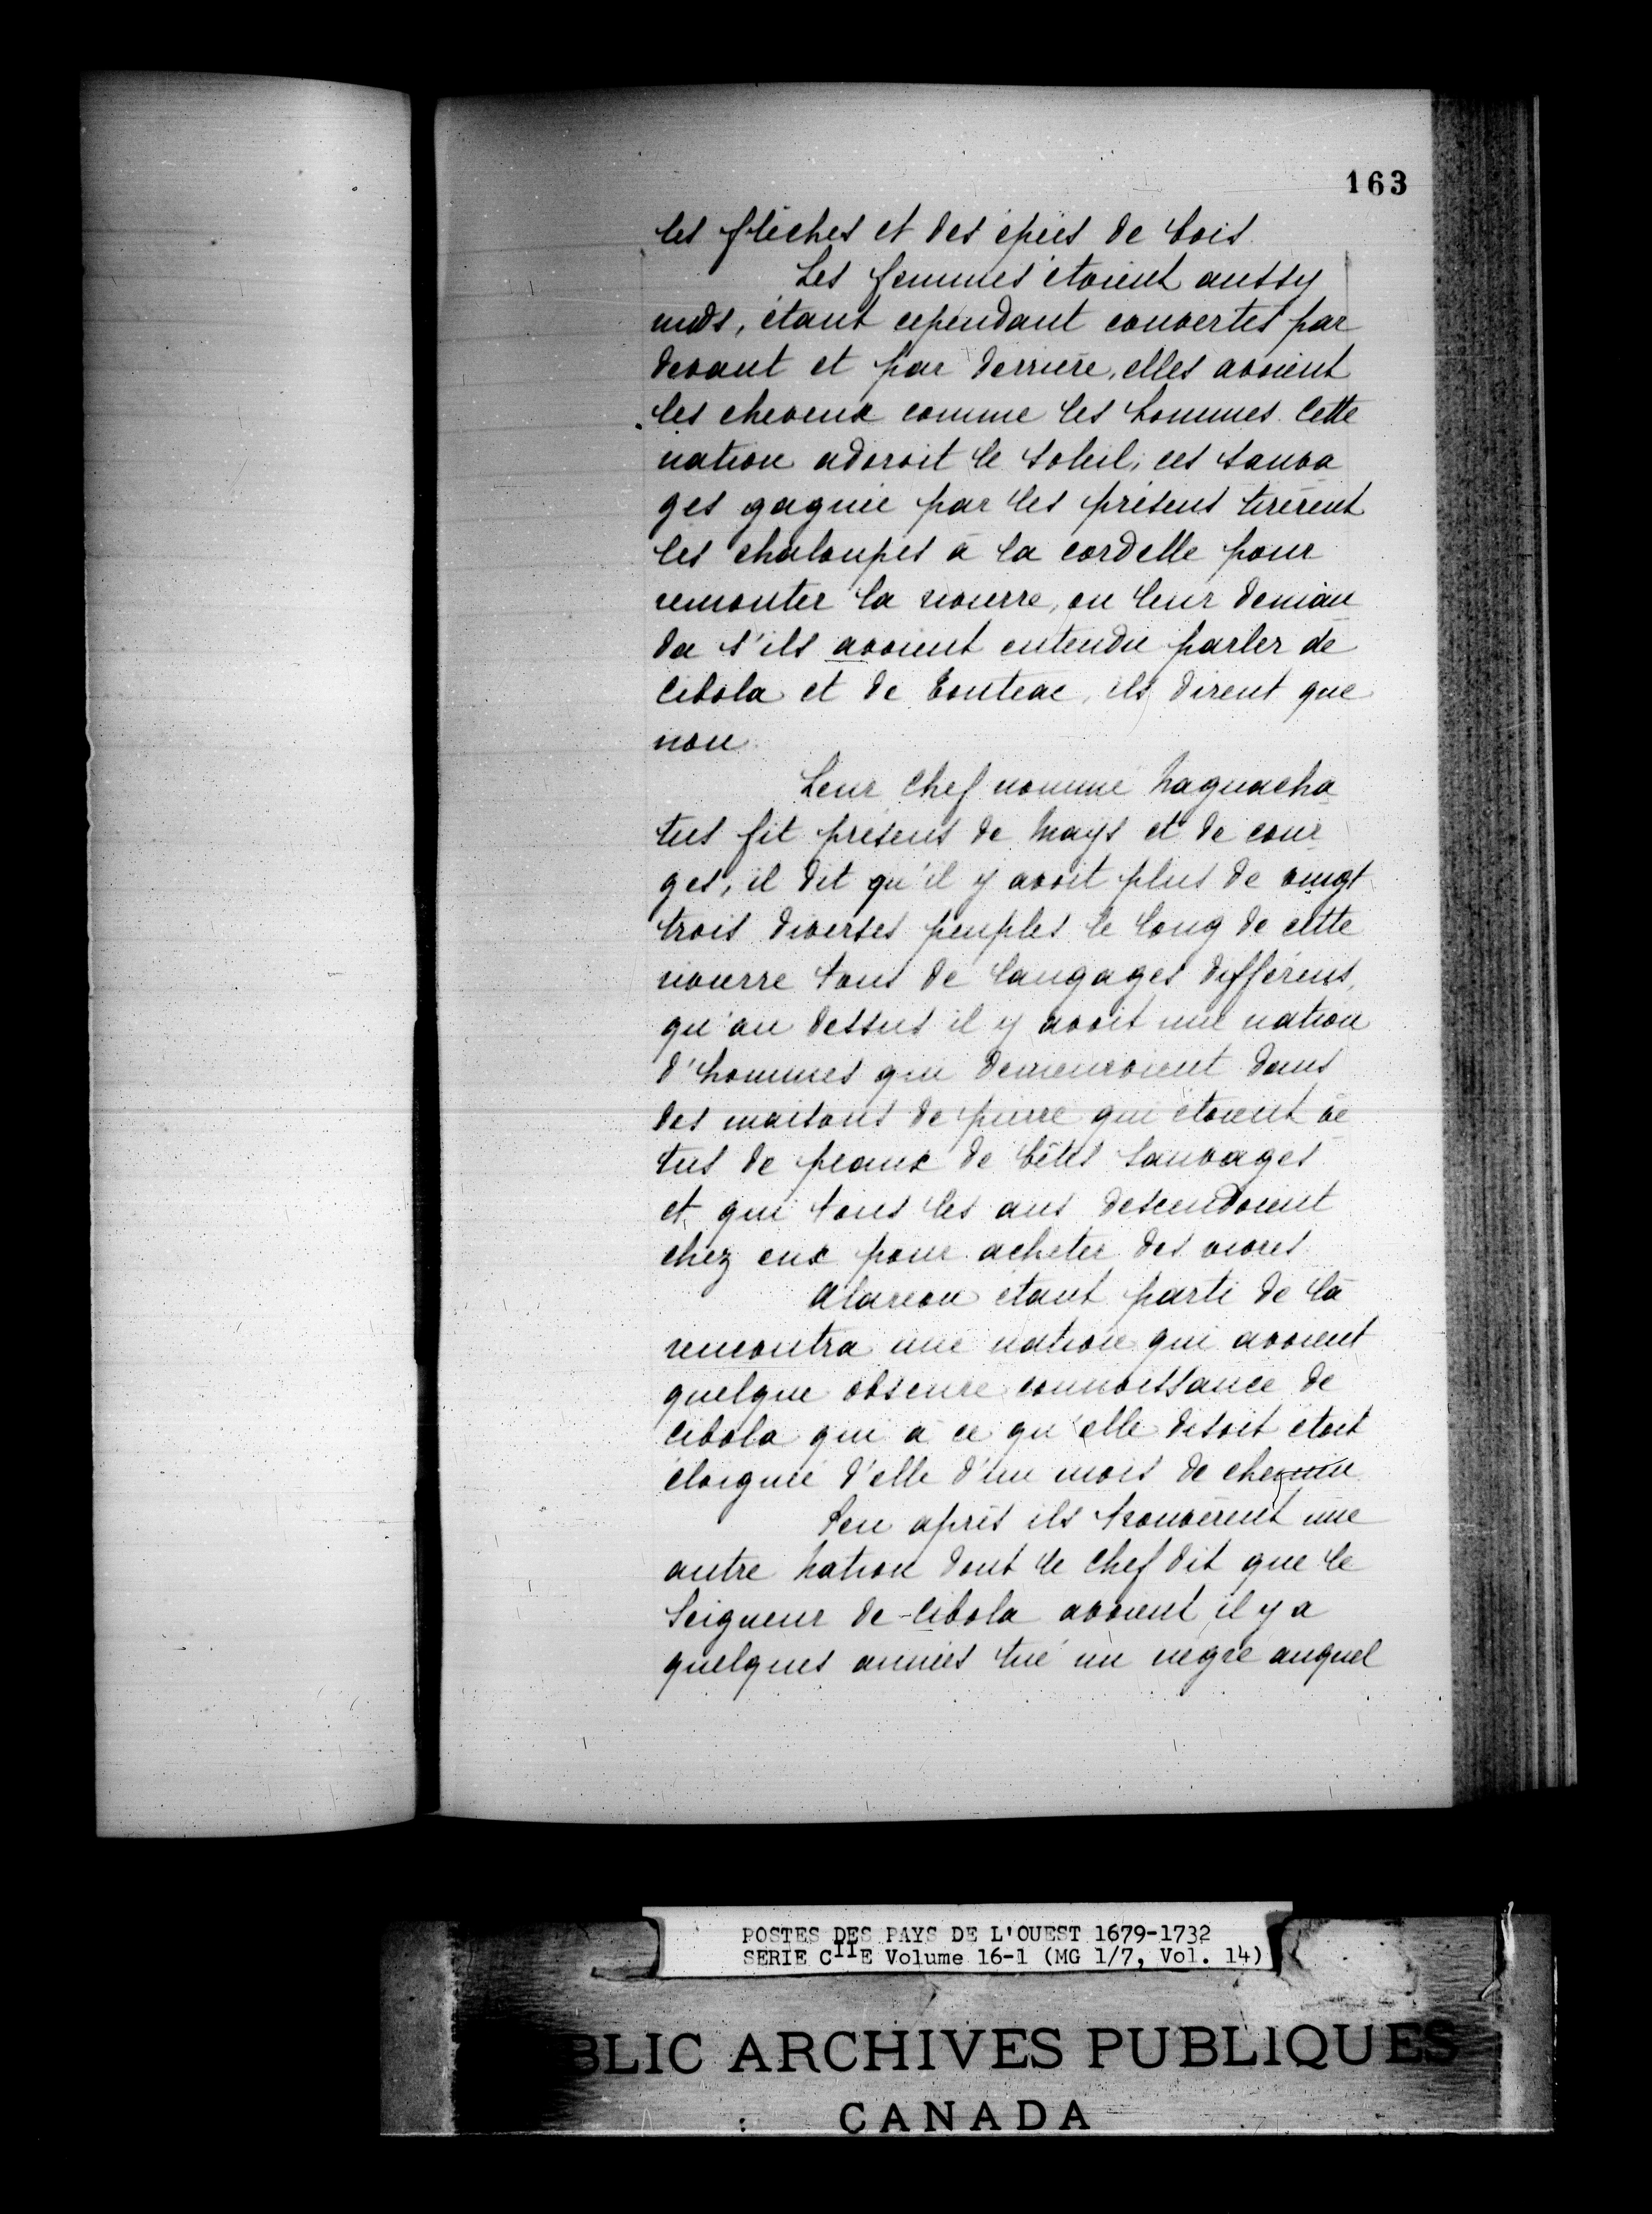 163
les flèches et des épées de bois.
Les femmes étoient aussy
nuds, étant cependant couvertes par
devant et par derrière, elles avoient
les cheveux comme les hommes. Cette
nation adoroit le soleil, ces sauva
ges gagnée par les présens tirèrent
les chaloupes à la cordelle pour
remonter la rivierre, on leur deman
da s'ils avoient entendu parler de
Cibola et de Touteac, ils dirent que
non.
Leur Chef nommé Naguacha
tus fit présens de Mays et de cour
ges, il dit qu'il y avoit plus de vingt
trois diverses peuples le long de cette
rivierre tous de langages différens,
qu'au dessus il y avoit une nation
d'hommes qui demeuroient dans
des maisons de pierre qui étoient vê
tus de peaux de bêtes sauvages
et qui tous les ans descendoient
chez eux pour acheter des vivres.
Alarcon étant parti de là
rencontra une nation qui avoient
quelque obscure connoissance de
Cibola qui à ce qu'elle disoit étoit
éloignée d'elle d'un mois de chemin.
Peu après ils trouvèrent une
autre Nation dont le Chef dit que le
Seigneur de Cibola avoient il y a
quelques années tué un nègre auquel
POSTES DES PAYS DE L'OUEST 1679-1732
SERIE CIIE Volume 16-1 (MG 1/7, Vol. 14)
BLIC ARCHIVES PUBLIQUES
CANADA